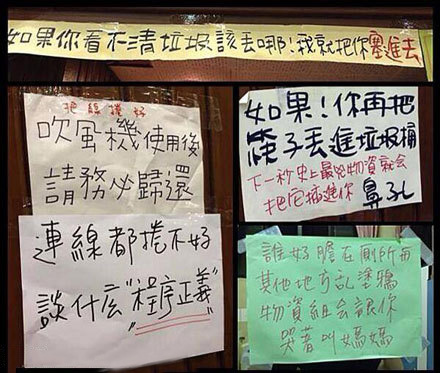 如果你看不清垃圾該丟哪!我就把你塞進去
把線捲好
吹風機使用後
請務必歸還
連線都捲不好
談什么"程序正義"
如果!你再把
筷子丟進垃圾桶
下一秒史上最兇物資就會
把它插進你鼻孔
誰好膽在廁所再
其他地方乱塗鴉
物資組会讓你
哭著叫媽媽